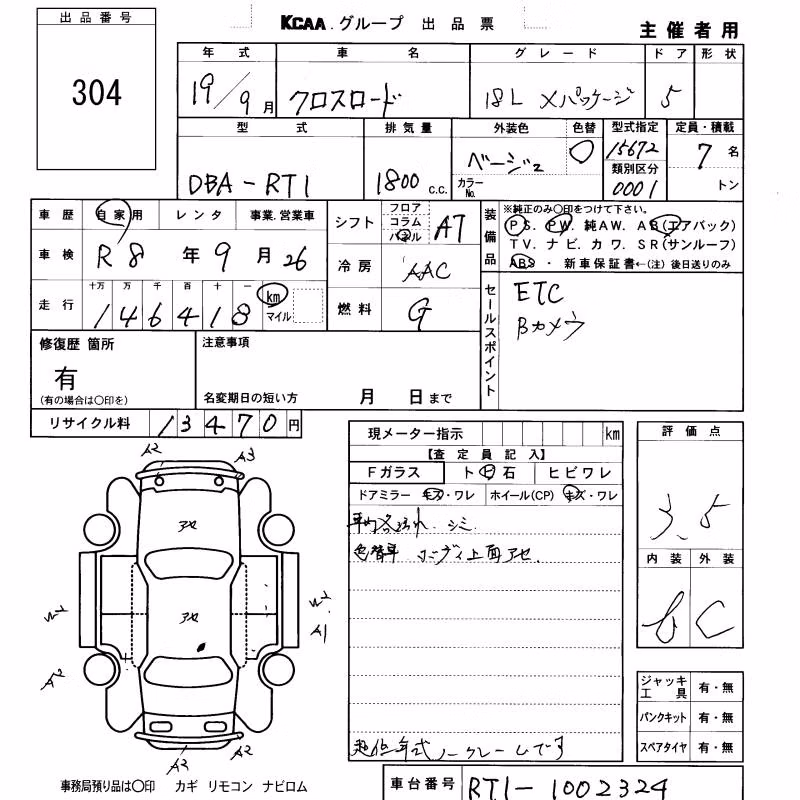 出品番号
304
KCAA.グループ 出品票
主催者用
年式 車名 グレード ドア 形状
19/9月 クロスロード 18L Xパッケージ 5
型式 排気量 外装色 色替 型式指定 定員・積載
DBA-RT1 1800 C.C. ベージュ カラーNo. 15672 類別区分 0001 7名 トン
車歴 自家用 レンタ 事業.営業車
車検 R8年9月26
走行 十万 万 千 百 十 一
146418 km マイル
シフト フロア コラム パネル AT
冷房 AAC
燃料 G
装備品 ※純正のみ〇印をつけて下さい。
PS. PW. 純AW. AB(エアバック)
TV. ナビ. カワ. SR(サンルーフ)
ABS ・ 新車保証書←(注) 後日送りのみ
セールスポイント
ETC
Bカメラ
修復歴 箇所
有
(有の場合は〇印を)
注意事項
名変期日の短い方 月 日まで
リサイクル料 13470円
現メーター指示 km
【査定員記入】
Fガラス ト 石 ヒビワレ
ドアミラー キズ・ワレ ホイール(CP) キズ・ワレ
シミ
色替車 上面アセ.
ノークレームです
評価点
3.5
内装 外装
C
ジャッキ工具 有・無
パンクキット 有・無
スペアタイヤ 有・無
A2 A3
アセ
アセ
A1
A2
A2 A2
事務局預り品は〇印 カギ リモコン ナビロム
車台番号 RT1-1002324